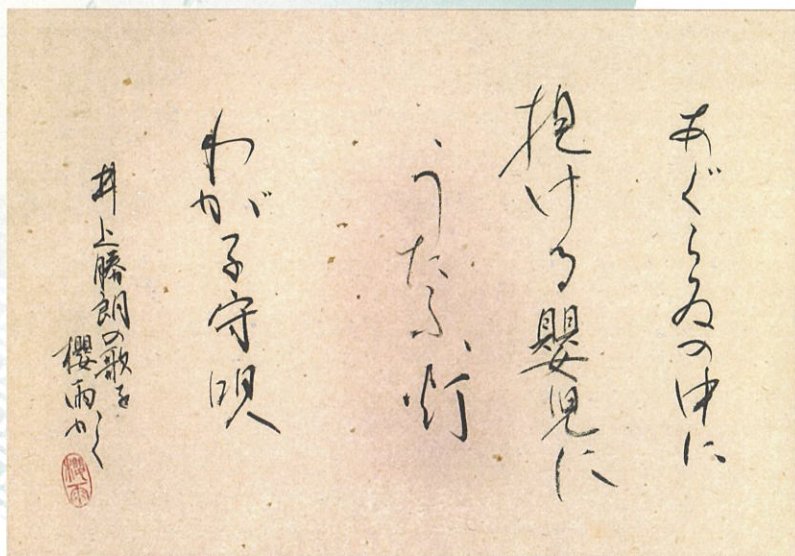 あぐらゐの中に
抱ける嬰児に
うたふ灯
わが子守唄
井上勝朗の歌を
櫻雨かく
櫻雨